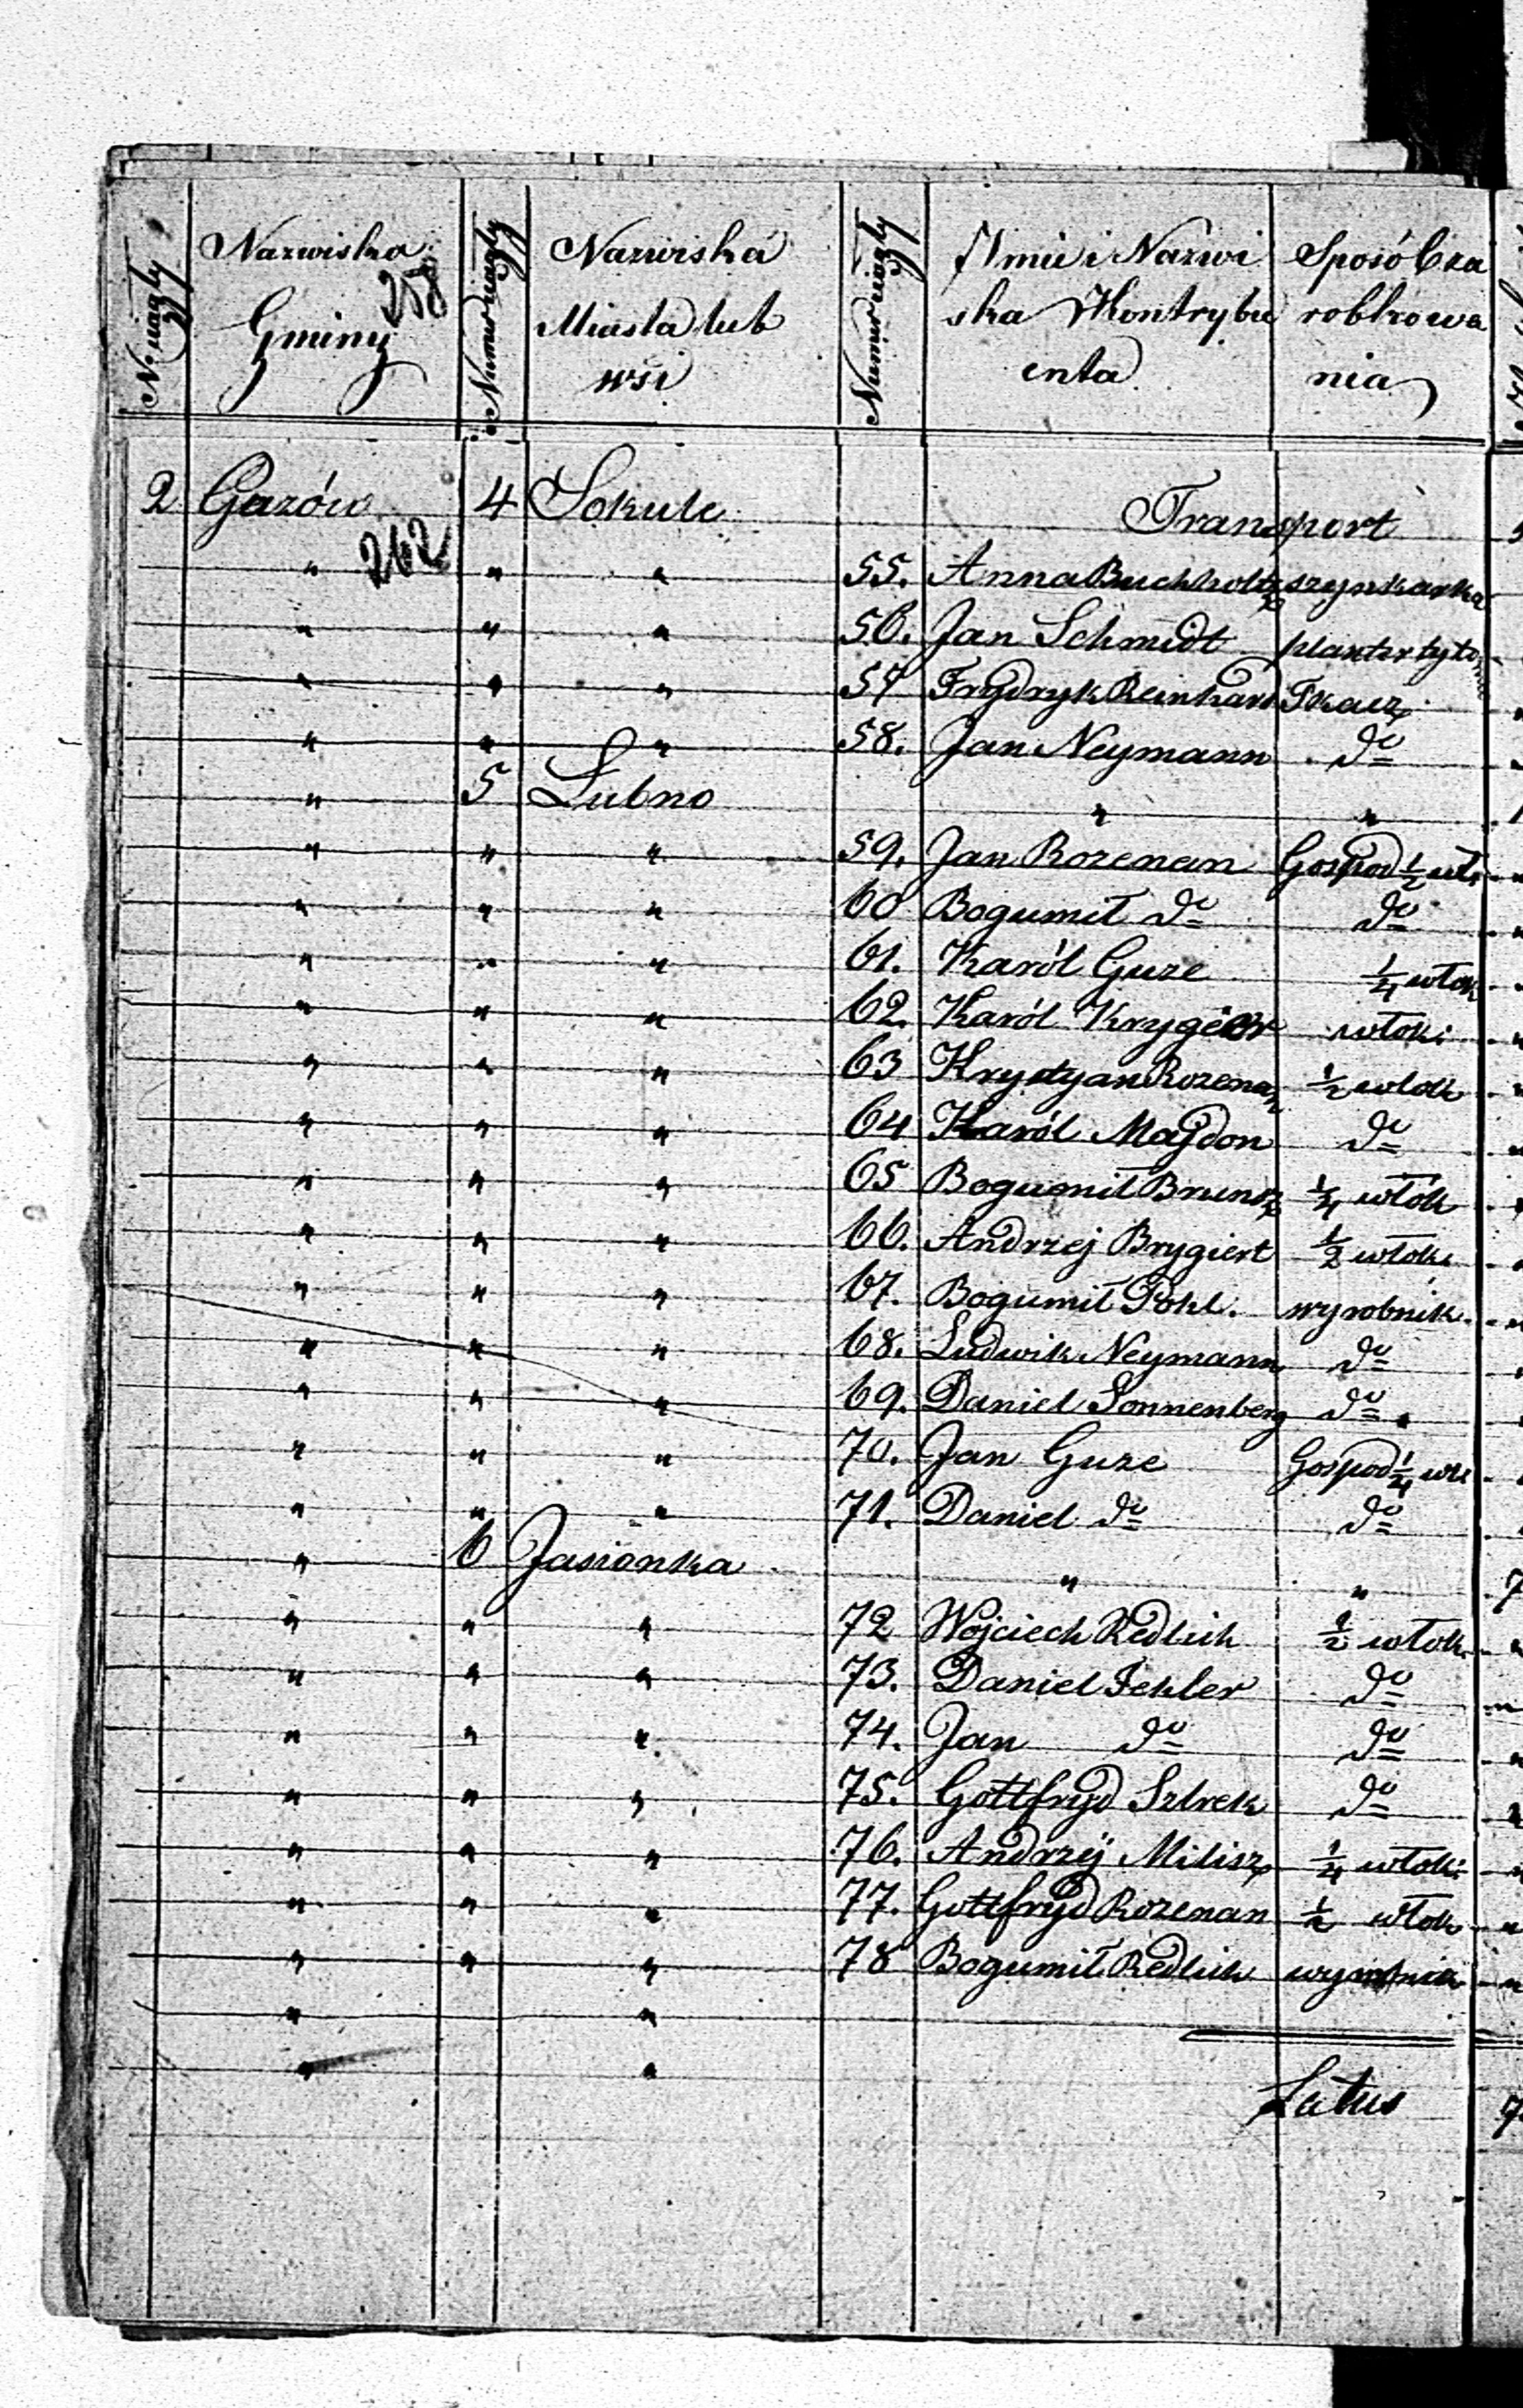 Nr ciągły
Nazwiska Gminy
258
Numer ciągły
Nazwiska Miasta lub wsi
Numer ciągły
Imie i Nazwi ska Kontrybu enta
Sposób za robkowa nia
2 Guzów 4 Sokule Transport
262
" " " 55. Anna Buchholtz szynkarka
" " " 56. Jan Schmidt plantr tyto
" " " 57 Frydryk Reinhard Tkacz
" " " 58. Jan Neymann do
" 5 Lubno " "
" " " 59. Jan Rozenan Gospod ½ wł.
" " " 60 Bogumił do do
" " " 61. Karól Guze ¼ włok
" " " 62. Karól Krygier włoki
" " " 63 Krystyan Rozenan ½ włok
" " " 64 Karól Majdon do
" " " 65 Bogumił Brunsz ¼ włók
" " " 66. Andrzej Brygiert ½ włoki
" " " 67. Bogumił Pohl. wyrobnik
" " " 68. Ludwik Neymann do
" " " 69. Daniel Sonnenberg do
" " " 70. Jan Guze Gospod ¼ wł
" " " 71. Daniel do do
" 6 Jasionka " "
" " " 72 Wojciech Redlich ½ włok
" " " 73. Daniel Fekler do
" " " 74. Jan do do
" " " 75. Gottfryd Sztrek do
" " " 76. Andrzÿ Milisz ¼ włoki
" " " 77. Gottfryd Rozenan ½ włok
" " " 78 Bogumił Redlich
" "
" "
Latus